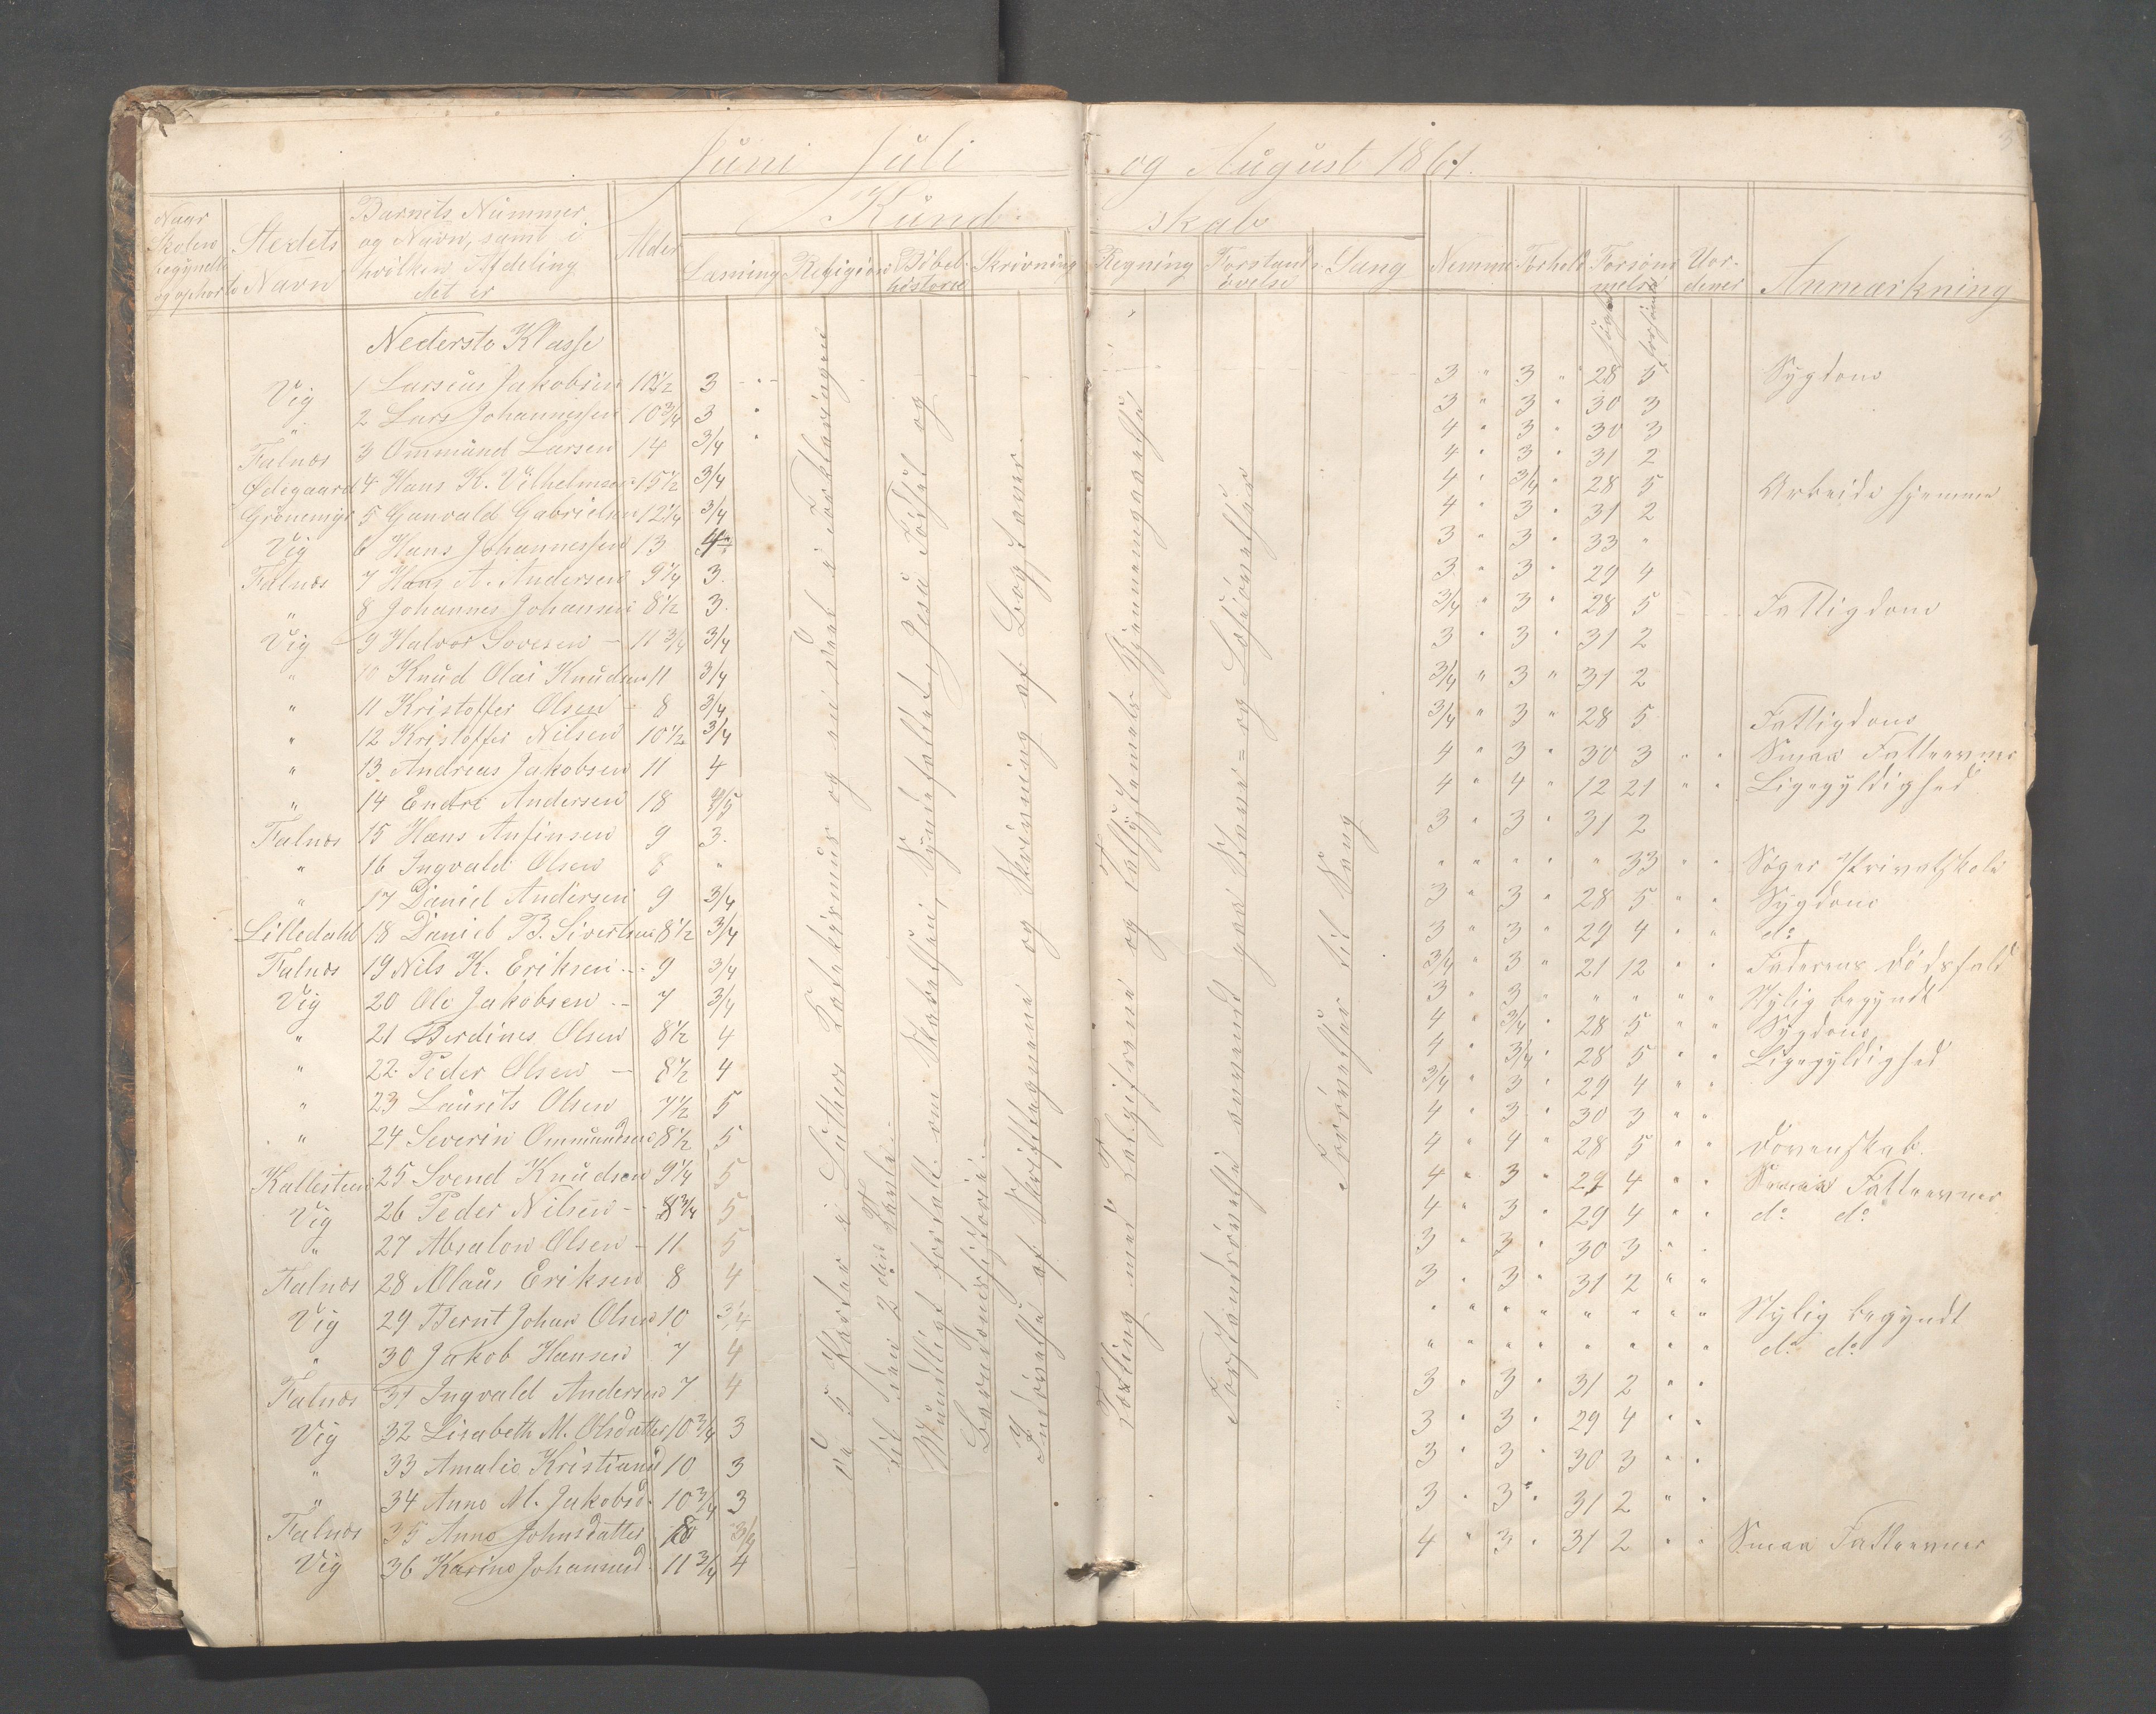 Juni Juli og August 1861.
3
Naar Skolen begyndte og ophørte | Stedets Navn | Barnets Nummer og Navn, samt i hvilken Afdeling det er | Alder | Kundskab | Læsning | Religion | Bibelhistorie | Skrivning | Regning | Forstandsøvelse | Sang | Nemme | Forhold | Forsømmelse | Uordener | Anmærkning
Nederste Klasse
Vig 1 Larseus Jakobsen 10½ 3 3 " 3 " 28 5 Sygdom
" 2 Lars Johannessen 10¾ 3 3 " 3 " 30 3
Falnæs 3 Ommund Larsen 14 3/4 4 " 3 " 30 3
Ødegaard 4 Hans K. Vilhelmsen 15½ 3/4 4 " 3 " 31 2
Grønemyr 5 Gunvald Gabrielsen 12¼ 3/4 4 " 3/4 " 28 5 Arbeide hjemme
Vig 6 Hans Johannessen 13 4 4 " 3 " 31 2
Falnæs 7 Hans A. Andersen 9¼ 3. 3 " 3 " 33 "
" 8 Johannes Johansen 8½ 3. 3 " 3 " 29 4
Vig 9 Halvor Sovesen 11¾ 3/4 3/4 " 3 " 28 5 Fattigdom
" 10 Knud Olai Knudsen 11 3/4 3 " 3 " 31 2
" 11 Kristoffer Olsen 8 3/4 3/4 " 3 " 31 2
" 12 Kristoffer Nilsen 10½ 3/4 3/4 " 3 " 28 5 Fattigdom
" 13 Andreas Jakobsen 11 4 4 " 3 " 30 3 " " Smaa Fatteevner
" 14 Endre Andersen 18 4/5 4 " 4 " 12 21 " " Ligegyldighed
Falnæs 15 Hans Anfinsen 9 3. 3 " 3 " 31 2
" 16 Ingvald Olsen 8 " " " " " " 33 " " Søger Privatskole
" 17 Daniel Andersen 9 3/4 3 " 3 " 28 5 " " Sygdom
Lilledahl 18 Daniel B. Sivertsen 8½ 3/4 3 " 3 " 29 4 " " do
Falnæs 19 Nils K. Eriksen 9 3/4 3/4 " 3 " 21 12 " " Faderens Dødsfald
Vig 20 Ole Jakobsen 7 3/4 3 " 3 " " " " " Nylig begyndt
" 21 Berdines Olsen 8½ 4 4 " 3/4 " 28 5 " " Sygdom
" 22 Peder Olsen 8½ 4 4 " 3/4 " 28 5 " " Ligegyldighed
" 23 Laurits Olsen 7½ 5 3/4 " 3 " 29 4 " "
" 24 Severin Ommundsen 8½ 5 4 " 3 " 30 3 " "
Kallesteen 25 Svend Knudsen 9¼ 5 4 " 4 " 28 5 " " Dovenskab.
Vig 26 Peder Nilsen 8¾ 5 4 " 3 " 29 4 " " Smaa Fatteevner
" 27 Absalon Olsen 11 5 4 " 3 " 29 4 " " do do
Falnæs 28 Klaus Eriksen 8 4 3 " 3 " 30 3 " "
Vig 29 Bernt Johan Olsen 10 3/4 3 " 3 " 31 2 " "
" 30 Jakob Hansen 7 4 " " " " " " " " Nylig begyndt
Falnæs 31 Ingvald Andersen 7 4 " " " " " " " " do do
Vig 32 Lisabeth M. Olsdatter 10¾ 3 3 " 3 " 31 2 " "
" 33 Amalie Kristiansd 10 3 3 " 3 " 29 4 " "
" 34 Anne M. Jakobsd. 10¾ 3 3 " 3 " 30 3 " "
Falnæs 35 Anne Johnsdatter 18 3/4 3 " 3 " 31 2 " "
Vig 36 Karine Johannesd. 11¾ 4 4 " 3 " 31 2 " " Smaa Fatteevner
De 5 Parter i Luthers Katekismus og en Deel i Forklaringen
til den 2den Part.
Mundtligt fortalt om Skabelsen, Syndefaldet, Jesu Fødsel og
Barndomshistorie.
Indøvelse af Skrifttegnene og Skrivning af Bogstaver.
Tælling med Talgifrene og Talsystemets Gjennemgaaelse
Forstandsøvelse anvendt paa Stave= og Læseøvelser
Forøvelser til Sang